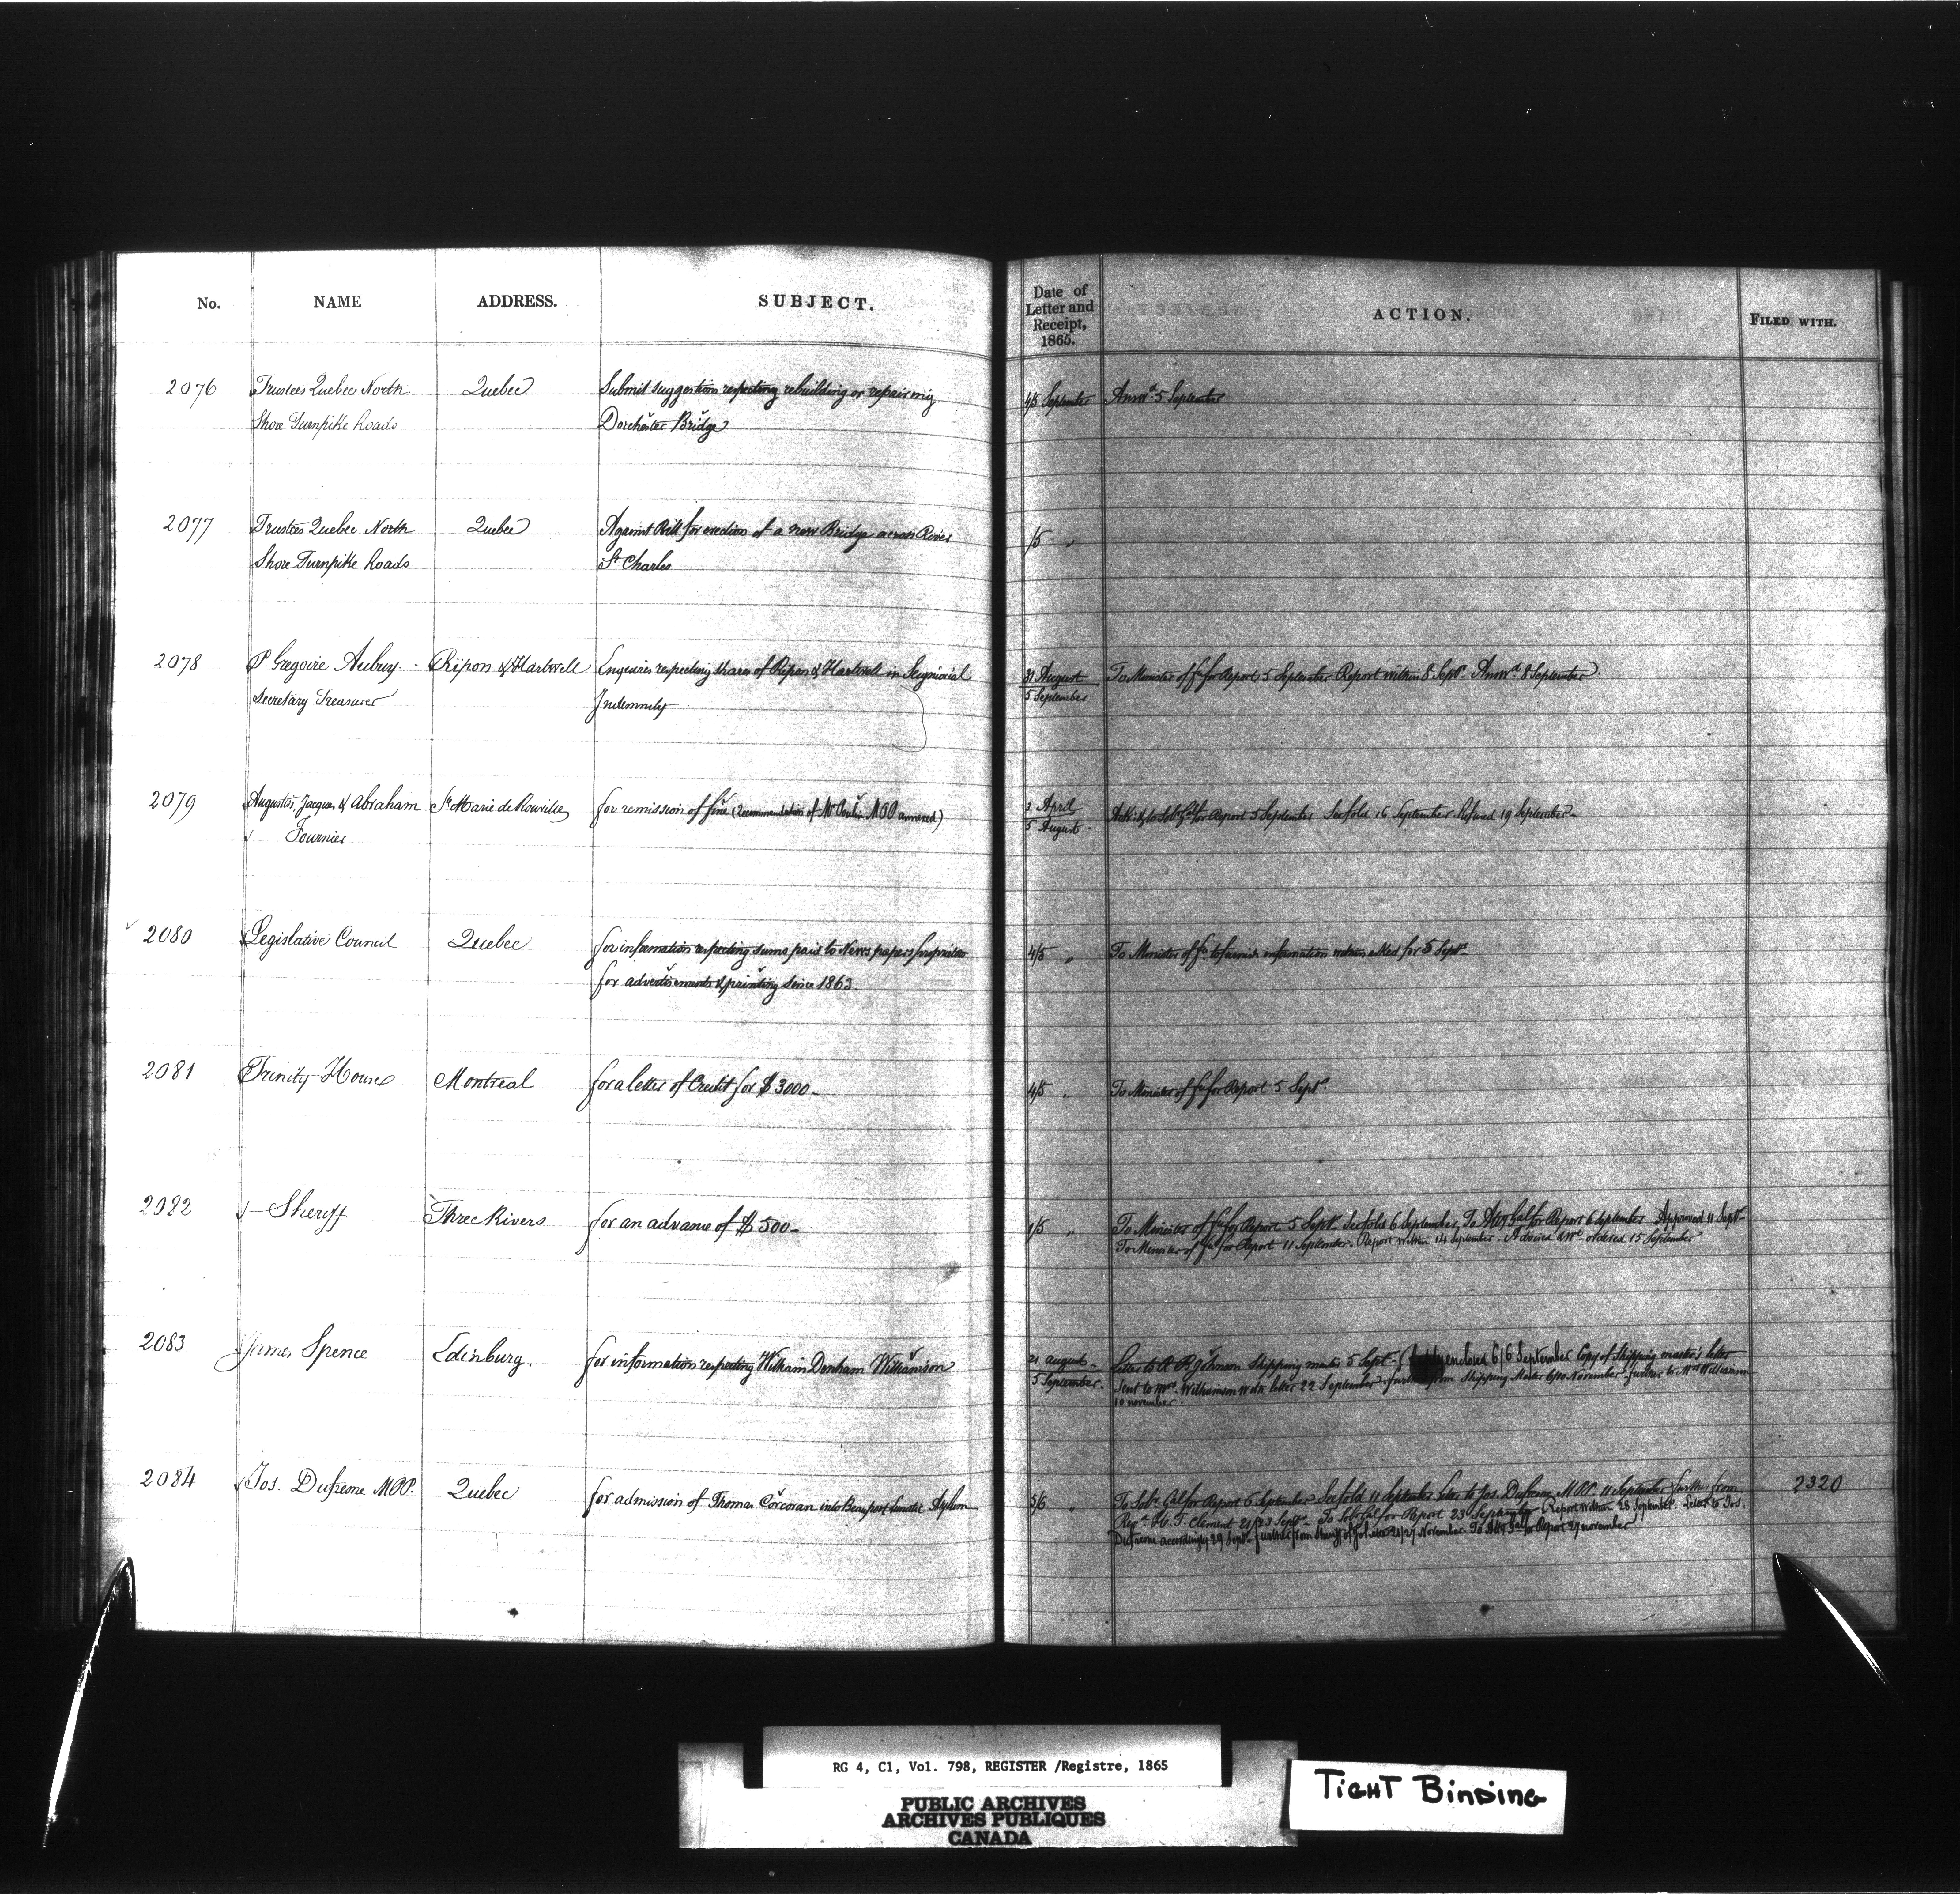 No. NAME ADDRESS. SUBJECT. Date of Letter and Receipt, 1865. ACTION. FILED WITH.
2076 Trustees Quebec North Quebec Submit suggestion respecting rebuilding or repairing 4/5 September Answd 5 September
Shore Turnpike Roads Dorchester Bridge
2077 Trustees Quebec North Quebec Against Bill for erection of a new Bridge across River /5 "
Shore Turnpike Roads St Charles
2078 P. Gregoire Aubury Ripon & Hartwell Enquiries respecting shares of Ripon & Hartwell in Seigniorial 31 August To Minister of Fce for Report 5 September Report within 8 Septr Answd 8 September.
Secretary Treasurer Indemnity 5 September
2079 Augustin, Jacques & Abraham Ste Marie de Rouville for remission of fine (Recommendation of Mr MPP annexed) 2 April for Report 5 September 16 September Refused 19 September
Fournier 5 August
2080 Legislative Council Quebec for information respecting sums paid to News papers proprietors 4/5 " To Minister of Fce to furnish information within asked for 5 Septr
for advertisements & printing since 1863.
2081 Trinity House Montreal for a letter of Credit for $3000 4/5 " To Minister of Fce for Report 5 Septr
2082 Sheriff Three Rivers for an advance of $500 1/5 " To Minister of Fce for Report 5 Septr 6 September, To Atty Gal for Report 6 September Approved 11 Septr
To Minister of Fce for Report 11 September. Report within 14 September. Advised & ordered 15 September
2083 James Spence Edinburg. for information respecting William Denham Williamson 21 August Letter to R. R. Johnson Shipping master 5 Septr enclosed 6/6 September Copy of Shipping master's letter
5 September. Sent to Mrs Williamson letter 22 September further from Shipping Master November further to Mrs Williamson
10 november.
2084 Jos. Dufresne MPP. Quebec for admission of Thomas Corcoran into Beauport Lunatic Asylum 5/6 " To Solr Gal for Report 6 September 11 September Letter to Jos. Dufresne MPP. 11 September further from 2320
F. Clement 21/23 Septr To Solr Gal for Report 23 September Report within 28 September. Letter to Jos.
Dufresne accordingly 29 Septr further from Sheriff of Joliette 21/27 November To Atty Gal for Report 27 november
RG 4, C1, Vol. 798, REGISTER /Registre, 1865
PUBLIC ARCHIVES
ARCHIVES PUBLIQUES
CANADA
TIGHT BINDING